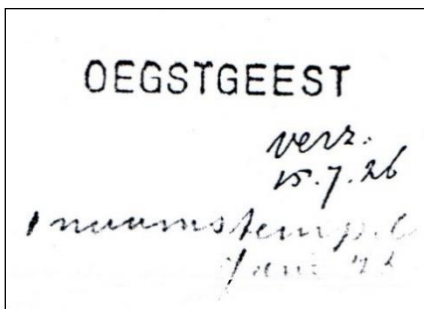 OEGSTGEEST
verz.
15.7.26
1 naamstempel